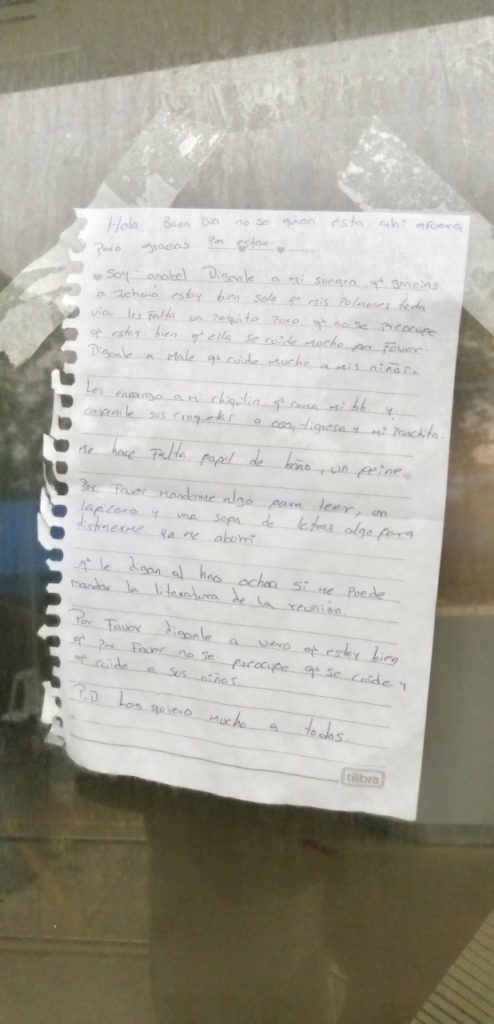 Hola Buen Dia no se quien esta ahi afuera
Pero gracias Por estar.
Soy anabel Diganle a mi suegra q' gracias
a Jehová estoy bien solo q' mis Pulmones toda
via les Falta un poquito Pero q' no se preocupe
q' estoy bien q' ella se cuide mucho por Favor.
Diganle a Male q' cuide mucho, a mis niños.
Les encargo a mi chiquilin q' coma mi bb y
comprenle sus croquetas a oso, tigresa y mi Panchito.
Me hace Falta papel de baño, un peine
Por Favor mandenme algo para leer, un
lapicero y una sopa de letras algo para
distraerme ya me aburri
q' le digan al hno ochoa si me puede
mandar la literatura de la reunión.
Por Favor diganle a vero q' estoy bien
q' por Favor no se preocupe q' se cuide y
q' cuide a sus niños.
P.D. Los quiero mucho a todos.
tilibra